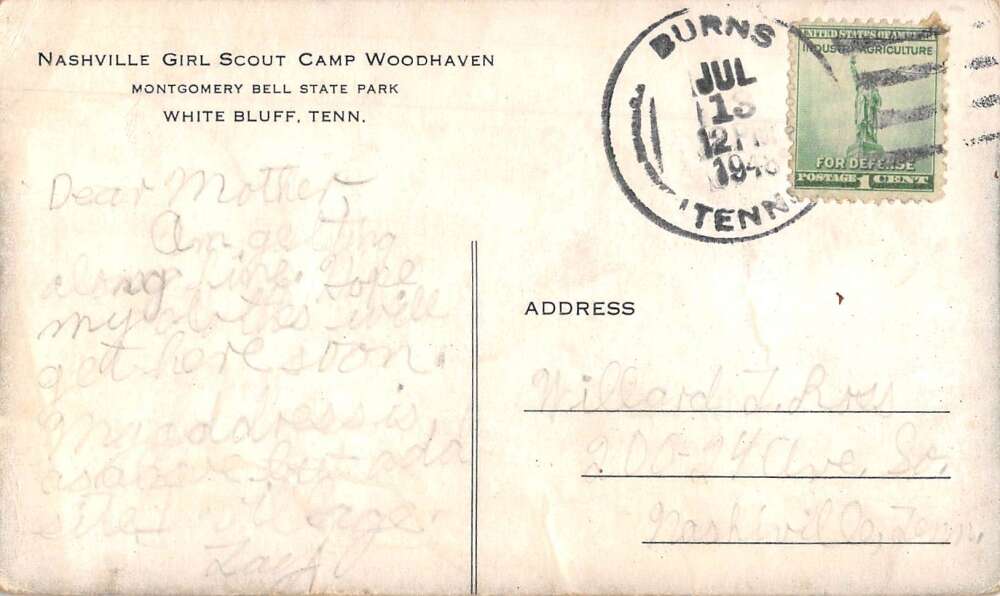 NASHVILLE GIRL SCOUT CAMP WOODHAVEN
MONTGOMERY BELL STATE PARK
WHITE BLUFF, TENN.
BURNS
JUL
12 PM
TENN
UNITED STATES OF AMERICA
INDUSTRY AGRICULTURE
FOR DEFENSE
POSTAGE 1 CENT
Dear Mother,
Am getting
along fine. Hope
my clothes will
get here soon.
My address is
as above but add
ADDRESS
Willard L. Ross
200-24 Ave. So.
Nashville, Tenn.